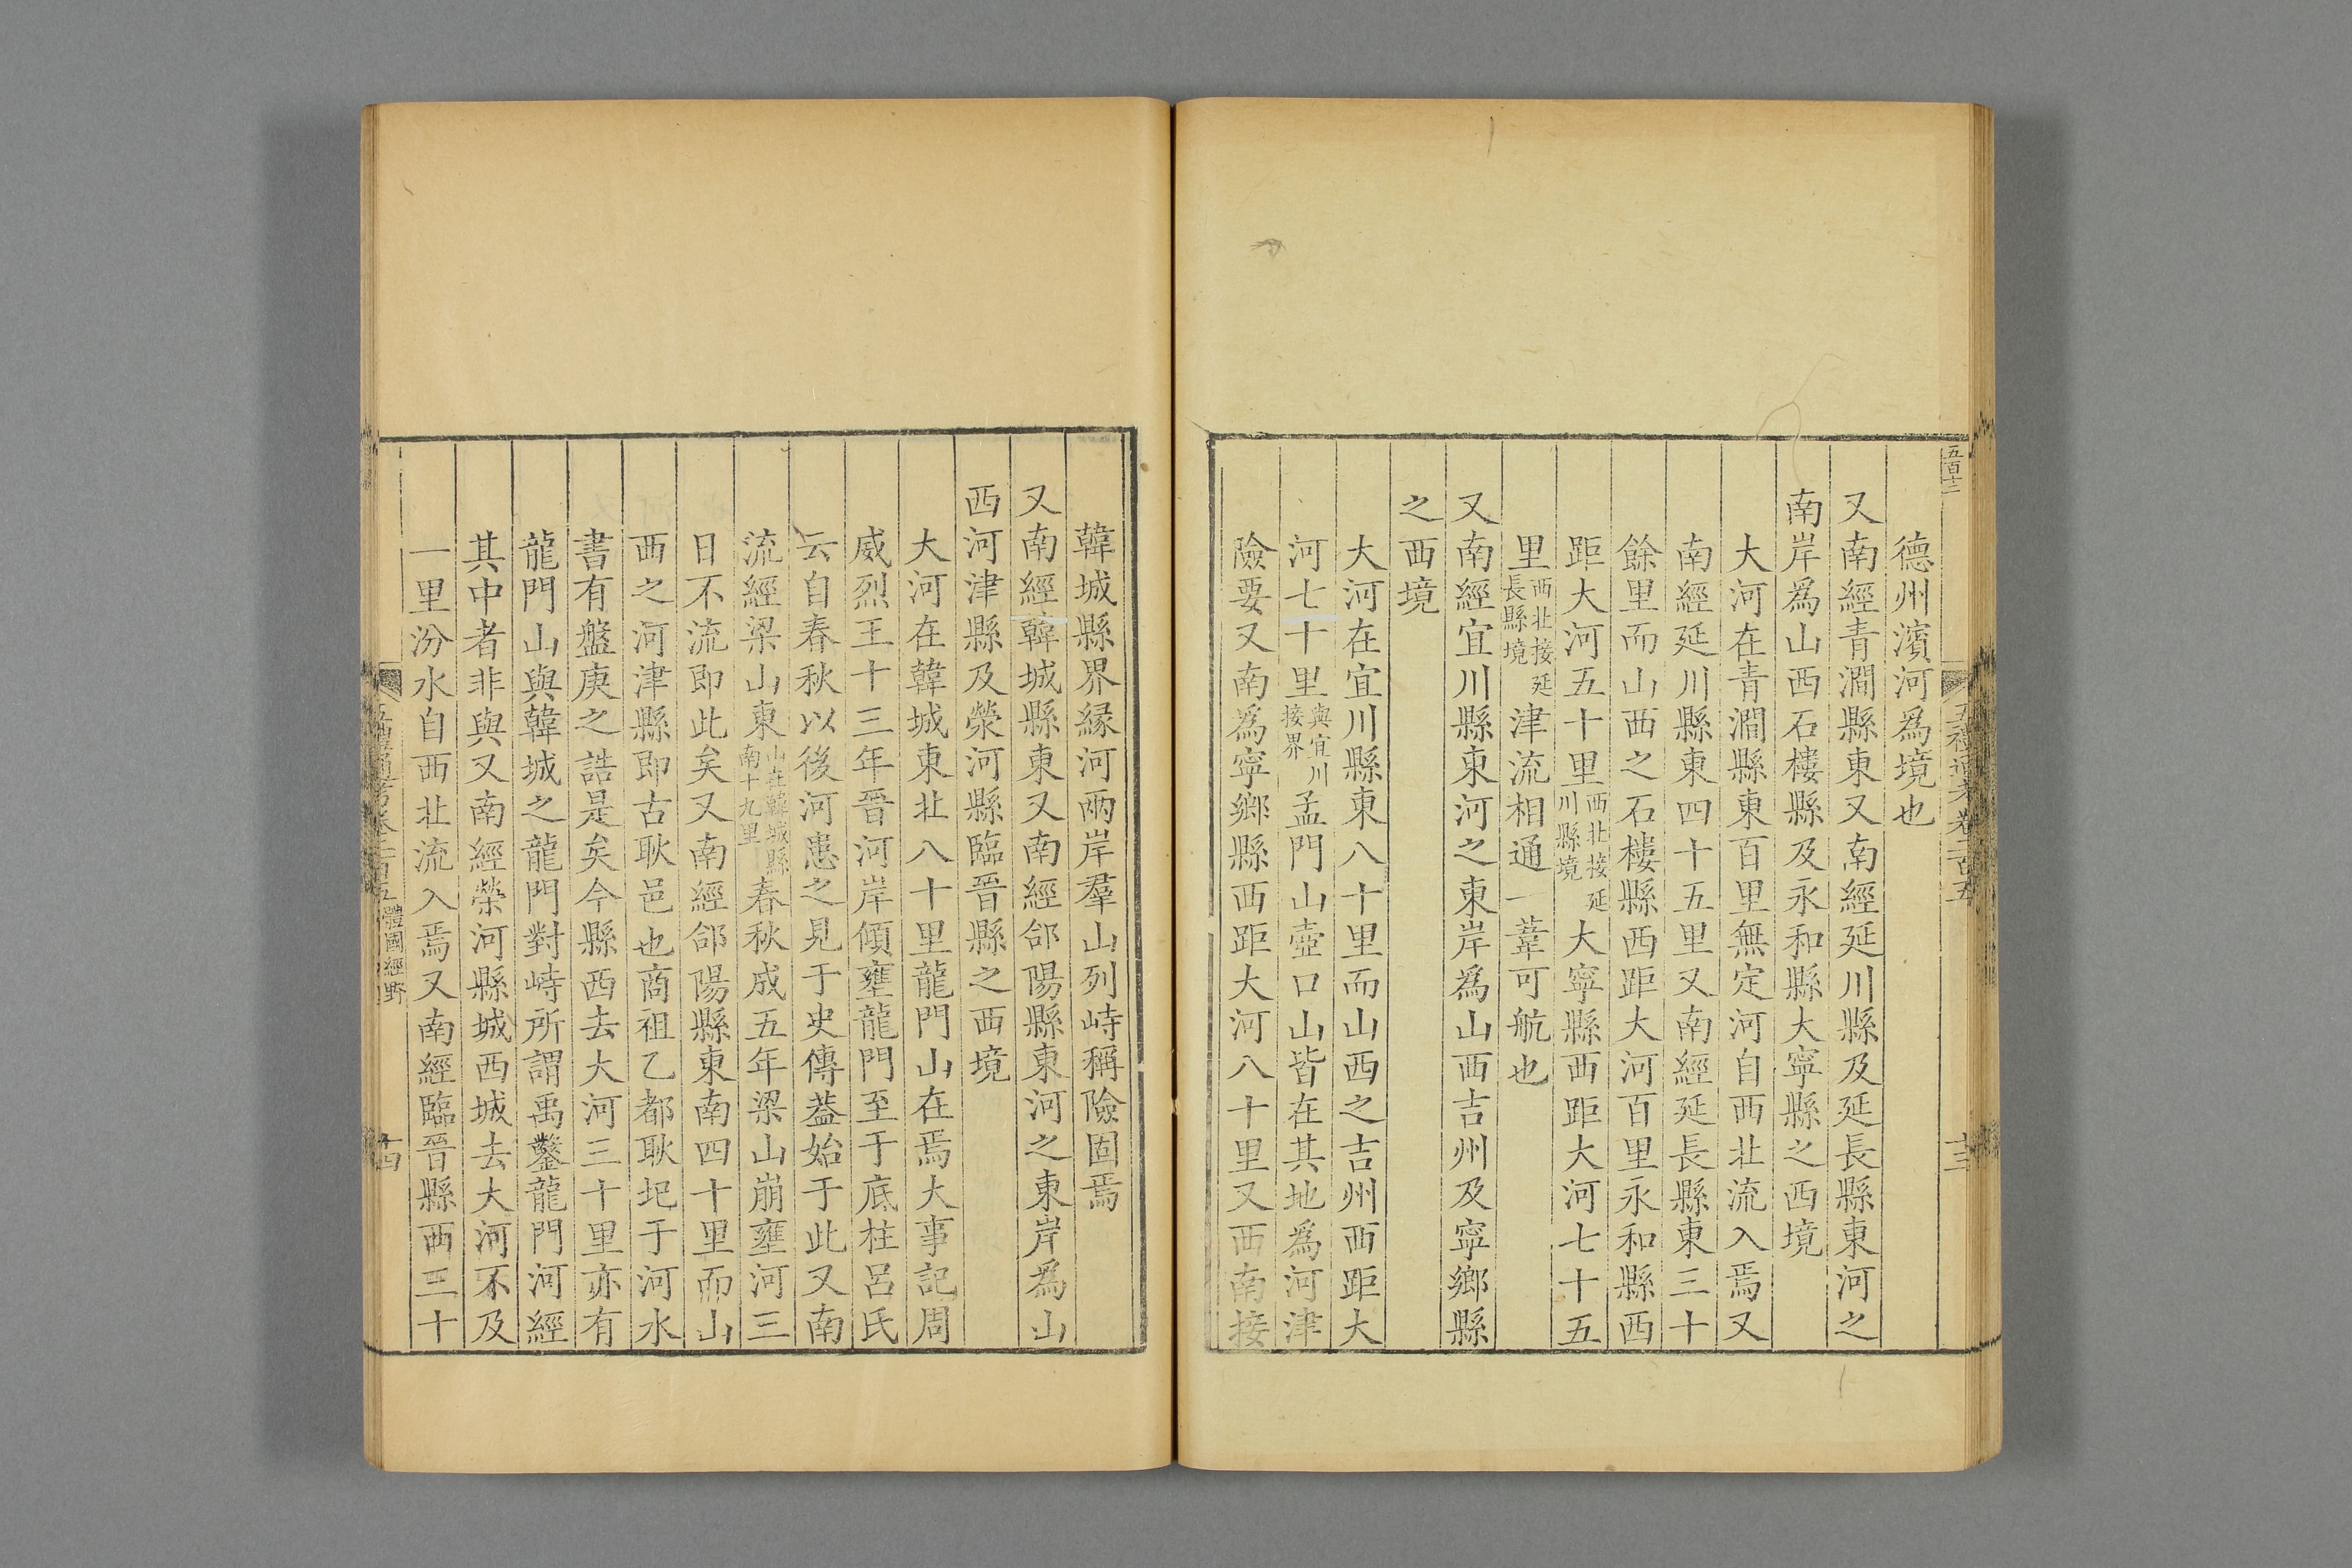 五百十二
五禮通考卷二百五
十三
德州濱河爲境也
又南經青澗縣東又南經延川縣及延長縣東河之
南岸爲山西石樓縣及永和縣大寧縣之西境
大河在青澗縣東百里無定河自西北流入焉又
南經延川縣東四十五里又南經延長縣東三十
餘里而山西之石樓縣西距大河百里永和縣西
距大河五十里西北接延川縣境大寧縣西距大河七十五
里西北接延長縣境津流相通一葦可航也
又南經宜川縣東河之東岸爲山西吉州及寧鄉縣
之西境
大河在宜川縣東八十里而山西之吉州西距大
河七十里與宜川接界孟門山壺口山皆在其地爲河津
險要又南爲寧鄉縣西距大河八十里又西南接
韓城縣界緣河兩岸羣山列峙稱險固焉
又南經韓城縣東又南經郃陽縣東河之東岸爲山
西河津縣及滎河縣臨晉縣之西境
大河在韓城東北八十里龍門山在焉大事記周
威烈王十三年晉河岸傾壅龍門至于底柱呂氏
云自春秋以後河患之見于史傳葢始于此又南
流經梁山東山在韓城縣南十九里春秋成五年梁山崩壅河三
日不流即此矣又南經郃陽縣東南四十里而山
西之河津縣即古耿邑也商祖乙都耿圯于河水
書有盤庚之誥是矣今縣西去大河三十里亦有
龍門山與韓城之龍門對峙所謂禹鑿龍門河經
其中者非與又南經榮河縣城西城去大河不及
一里汾水自西北流入焉又南經臨晉縣西三十
五禮通考卷二百五 體國經野
十四